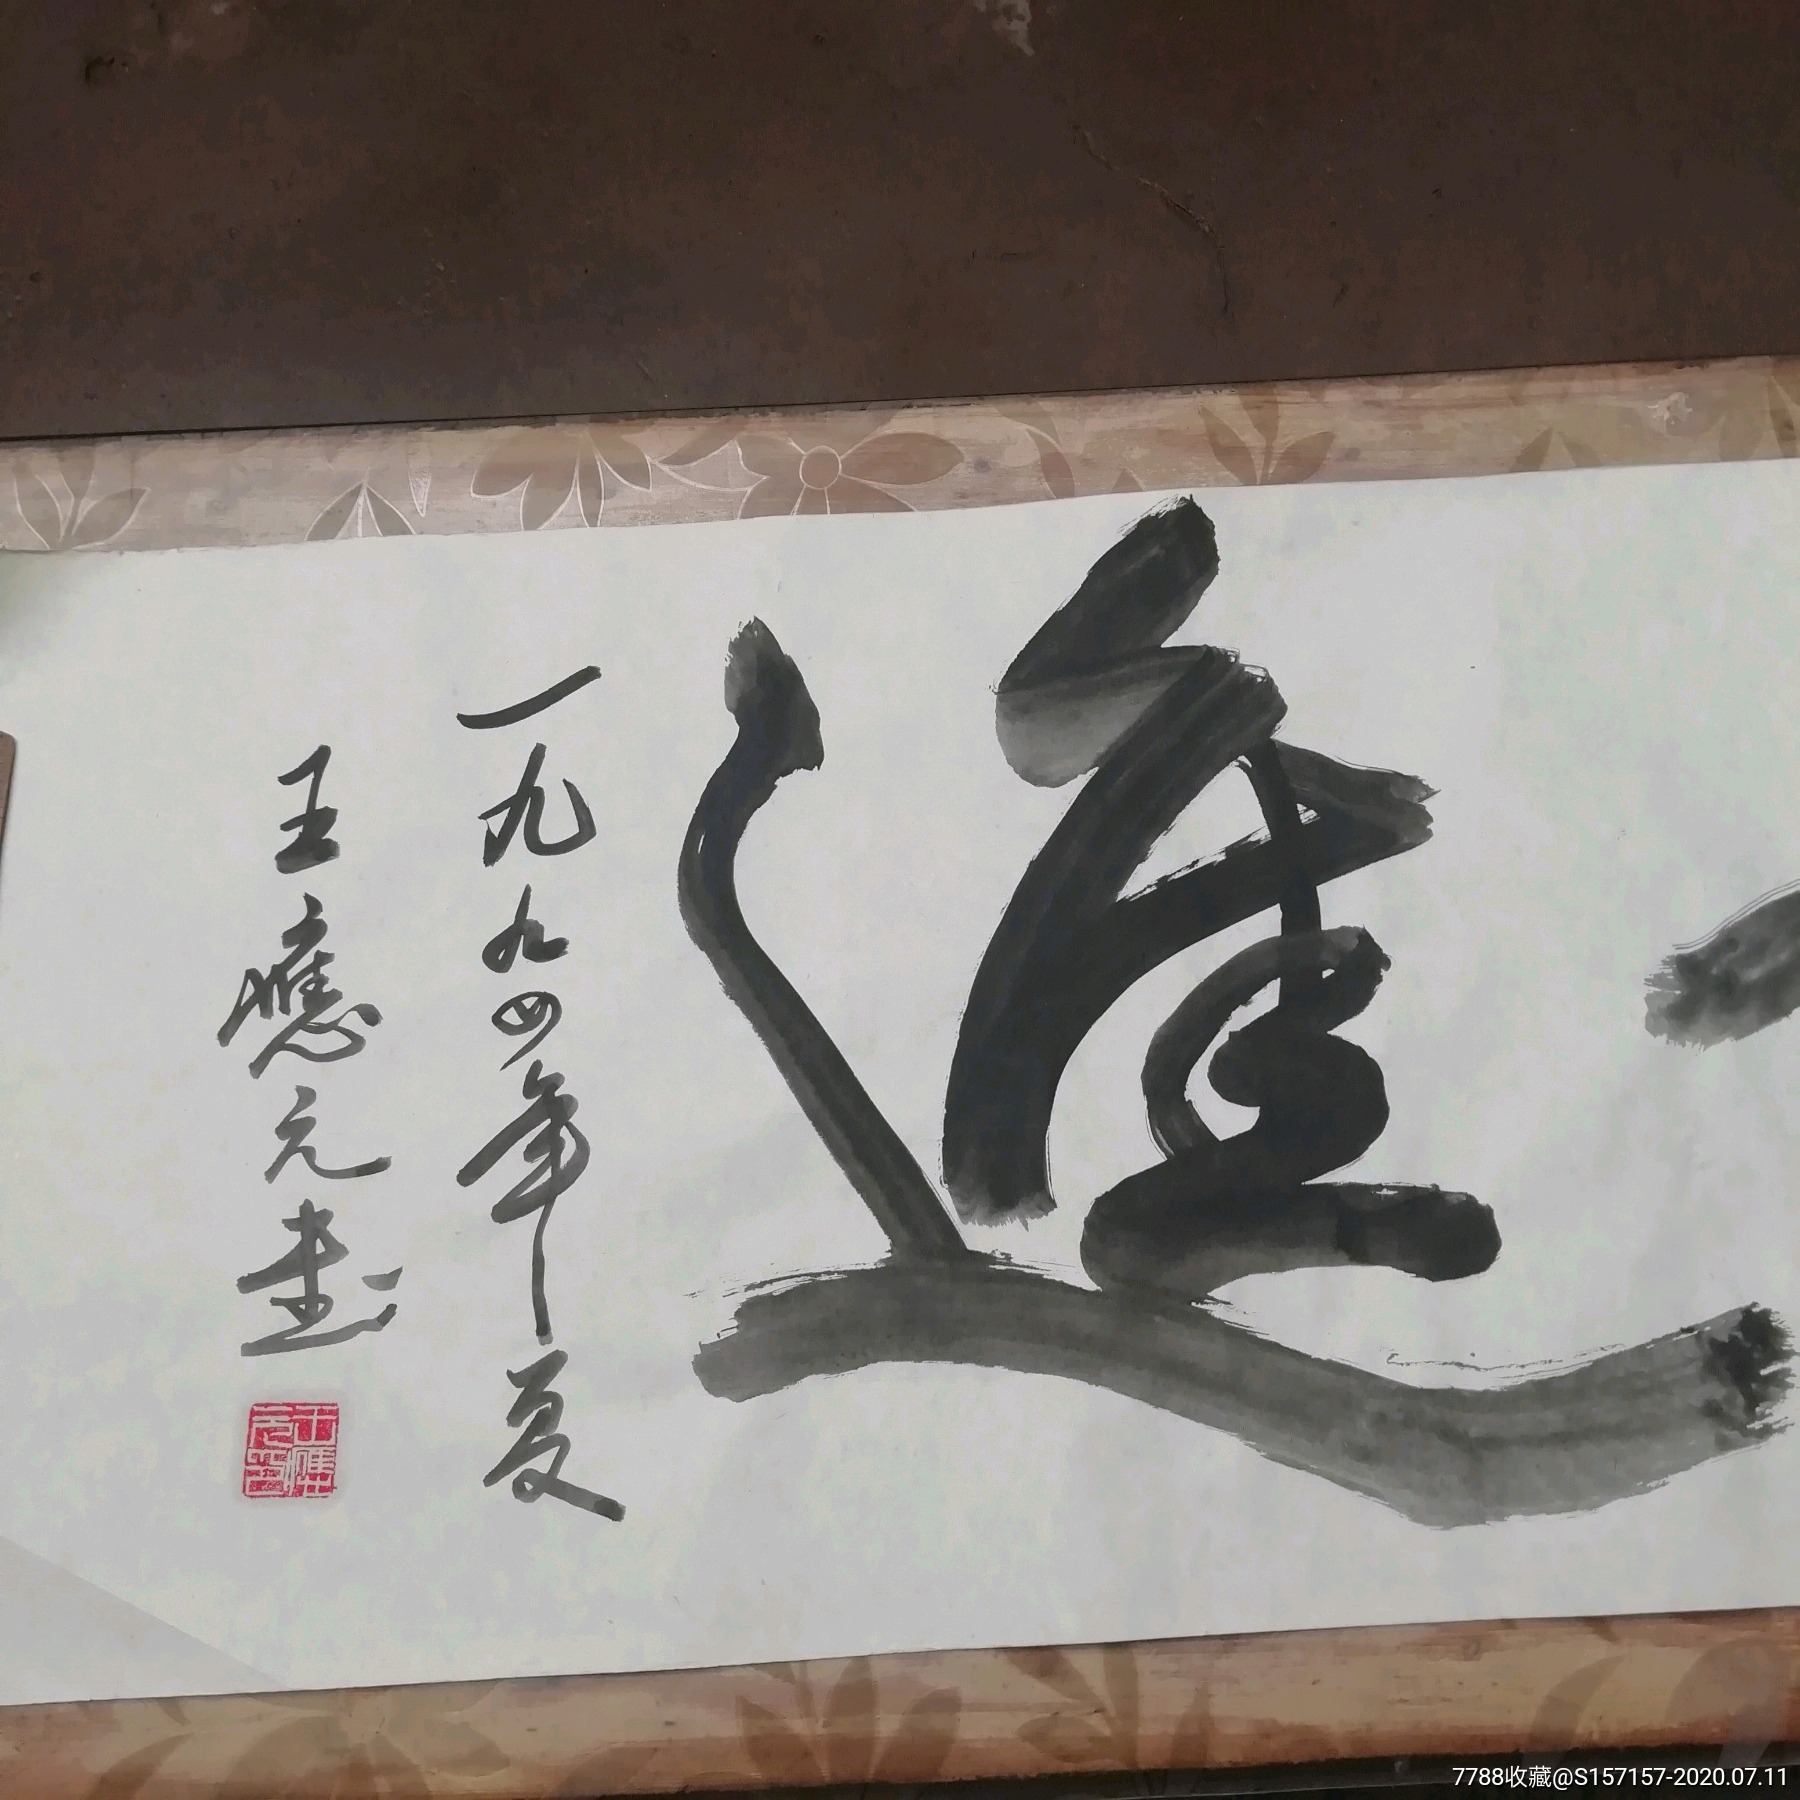 進
一九九四年夏
王應元書
王應元印
7788收藏@S157157-2020.07.11